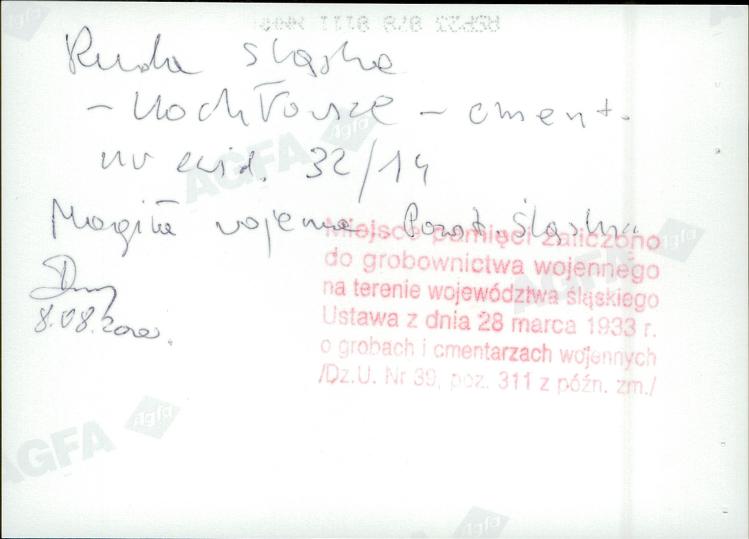 Ruda Śląska
- Kochłowice - cment.
nr ewid. 32/14
Mogiła wojenna Powst. Śląska
Miejsce pamięci zaliczono
do grobownictwa wojennego
na terenie województwa śląskiego
Ustawa z dnia 28 marca 1933 r.
o grobach i cmentarzach wojennych
/Dz.U. Nr 39, poz. 311 z późn. zm./
8.08.
AGFA
Agfa
AGFA
Agfa